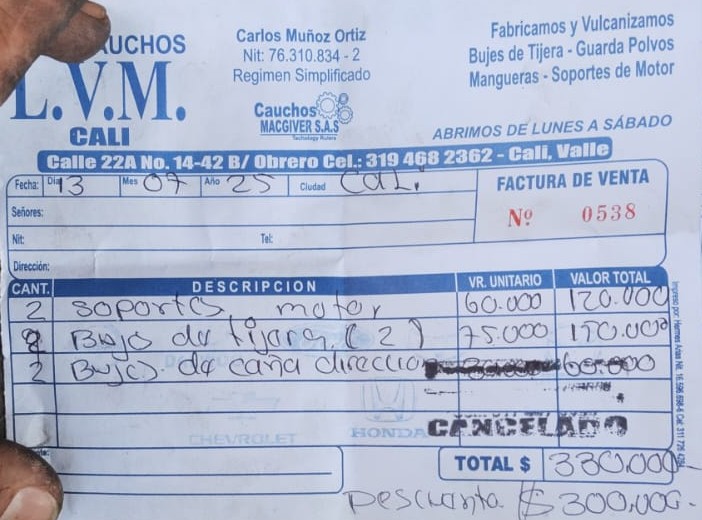 CAUCHOS
L.V.M.
CALI
Carlos Muñoz Ortiz
Nit: 76.310.834 - 2
Regimen Simplificado
Cauchos
MACGIVER S.A.S
Fabricamos y Vulcanizamos
Bujes de Tijera - Guarda Polvos
Mangueras - Soportes de Motor
ABRIMOS DE LUNES A SÁBADO
Calle 22A No. 14-42 B/ Obrero Cel.: 319 468 2362 - Cali, Valle
Fecha: Día 13 Mes 07 Año 25 Ciudad Cali
FACTURA DE VENTA
Nº 0538
Señores:
Nit: Tel:
Dirección:
CANT. DESCRIPCION VR. UNITARIO VALOR TOTAL
2 soportes motor 60.000 120.000
2 Bujo de tijera (2) 75.000 150.000
2 Bujes de caña direccion 60.000
CHEVROLET HONDA
CANCELADO
TOTAL $ 330.000
Descuento $ 300.000-